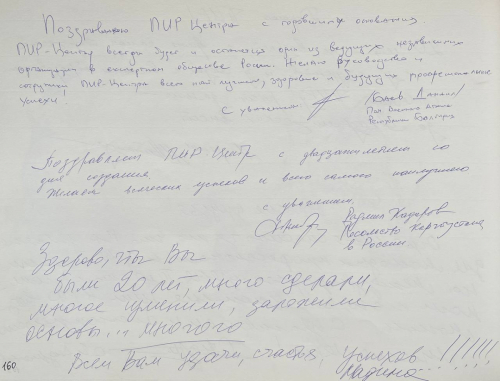 Поздравляю ПИР Центр с годовщиной создания
ПИР-Центр всегда был и остаётся один из ведущих независимых
организаций в экспертном обществе России. Желаю руководству и
сотрудникам ПИР-Центра всего наилучшего, здоровья и будущих профессиональных
успехов!
С уважением,
Республики Болгария
Поздравляем ПИР Центр с двадцатилетием со
дня создания
Желаем всяческих успехов и всего самого наилучшего
с уважением,
Посольство Кыргызстана
в России
Здорово, что Вы
были 20 лет, много сделали,
многое изменили, заложили
основы и многого
Всем Вам удачи, счастья, успехов !!!!!!
160